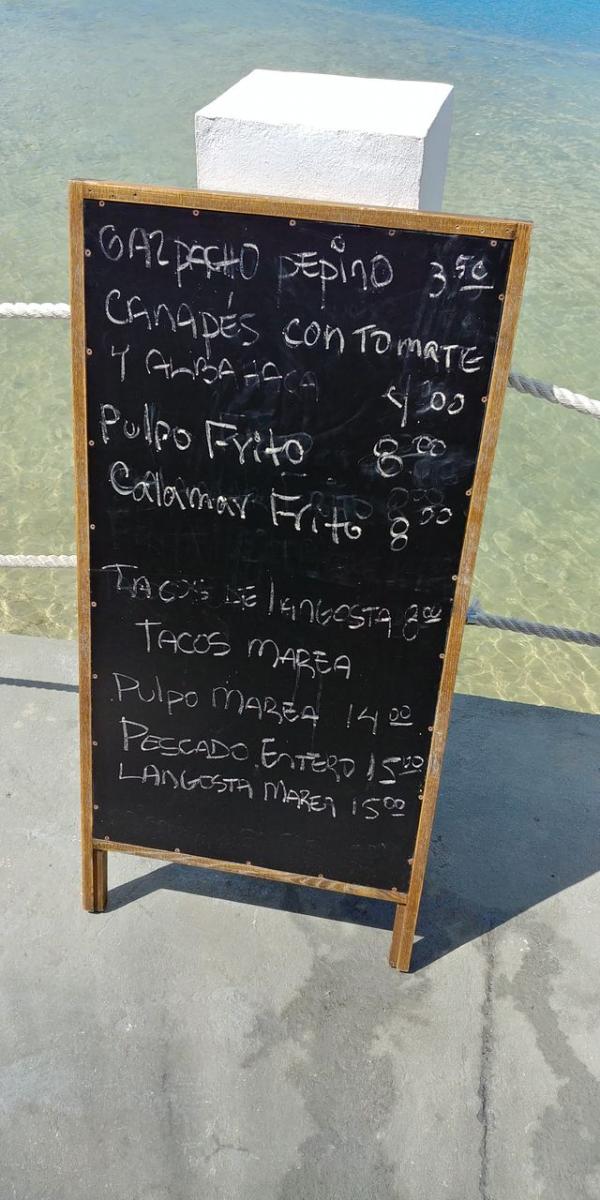 GAZPACHO PEPINO 3.50
CANAPÉS CON TOMATE
Y ALBAHACA 4.00
PULPO FRITO 8.00
Calamar Frito 8.00
TACOS DE LANGOSTA 8.00
TACOS MAREA
PULPO MAREA 14.00
PESCADO ENTERO 15.00
LANGOSTA MAREA 15.00